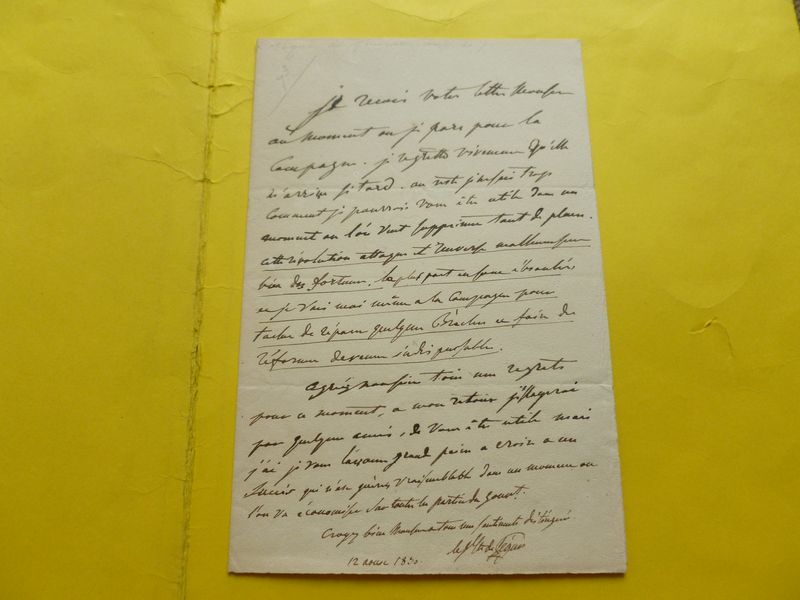 je recois votre lettre Monsieur
au moment ou je pars pour la
Campagne. je regrette vivement qu'elle
m'arrive si tard. au reste je ne sais trop
Comment je pourrois vous être utile dans un
moment ou l'on veut supprimer tant de places.
cette révolution attaque et renverse malheureusement
bien des fortunes. la plus part en sont ébranlées
et je vais moi même a la Campagne pour
tacher de réparer quelques Brèches et faire des
réformes devenues indispensables.
agréez Monsieur tous mes regrets
pour ce moment, a mon retour j'essayerai
par quelques amis, de vous être utile mais
j'ai je vous l'avoue grand peine a croire a un
Succès qui n'est guères vraisemblable dans un moment ou
l'on va économiser sur toutes les parties du gouvt.
Croyez bien Monsieur a tous mes sentiments distingués
le Cte de Ségur
12 aout 1830